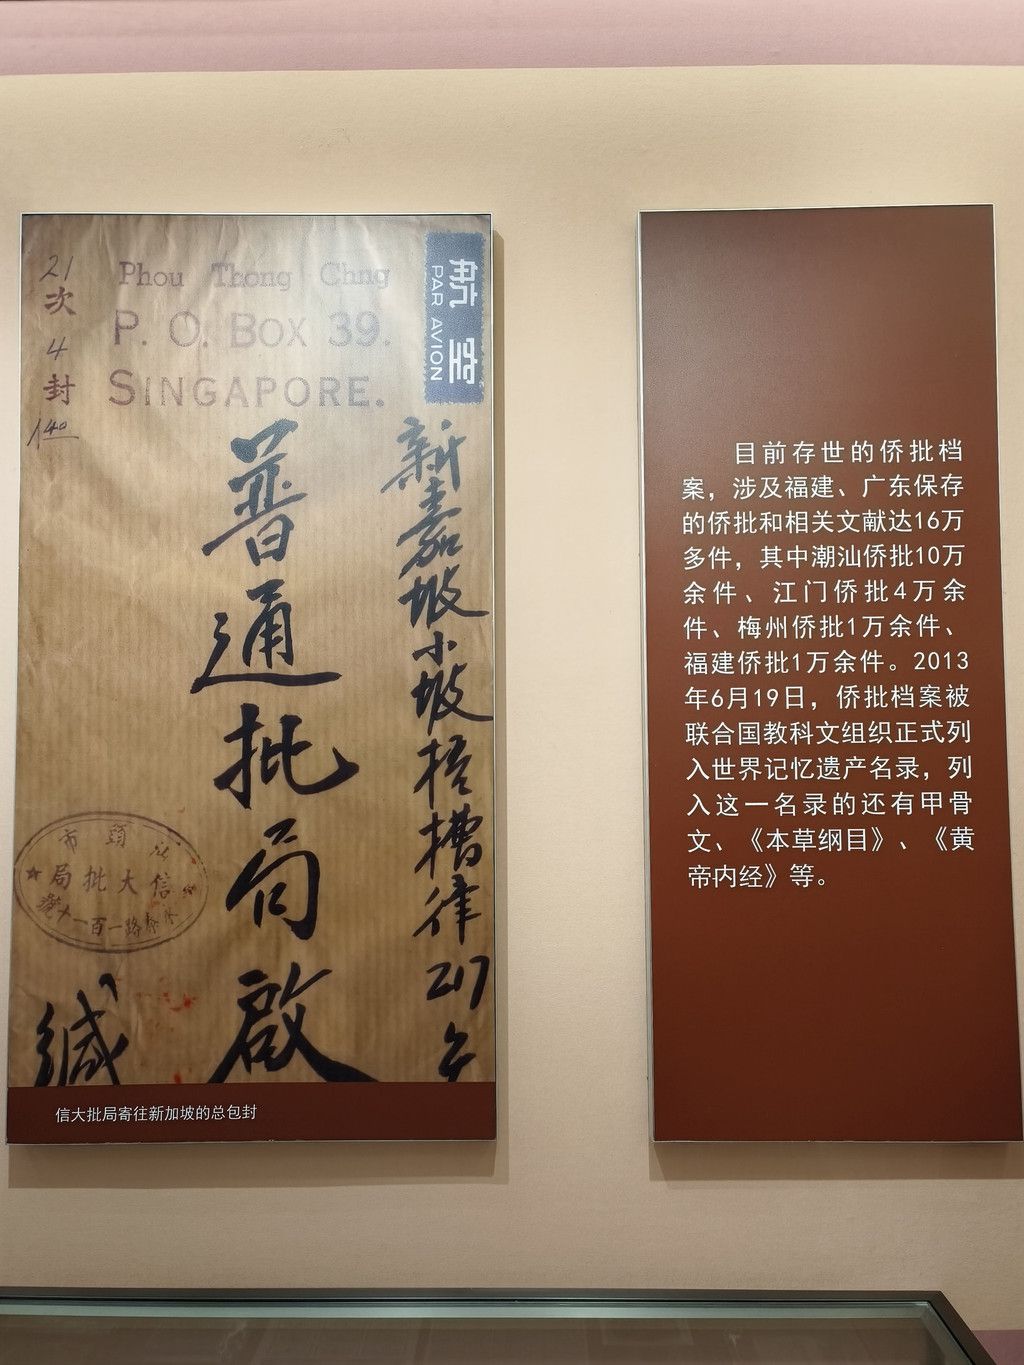 21
次
4
封
Phou Thong Chng
P. O. BOX 39.
SINGAPORE.
航空
PAR AVION
新嘉坡小坡梧槽律217
普通批局啟
汕頭市
信大批局
路一百一十號
緘
信大批局寄往新加坡的总包封
目前存世的侨批档
案，涉及福建、广东保存
的侨批和相关文献达16万
多件，其中潮汕侨批10万
余件、江门侨批4万余
件、梅州侨批1万余件、
福建侨批1万余件。2013
年6月19日，侨批档案被
联合国教科文组织正式列
入世界记忆遗产名录，列
入这一名录的还有甲骨
文、《本草纲目》、《黄
帝内经》等。